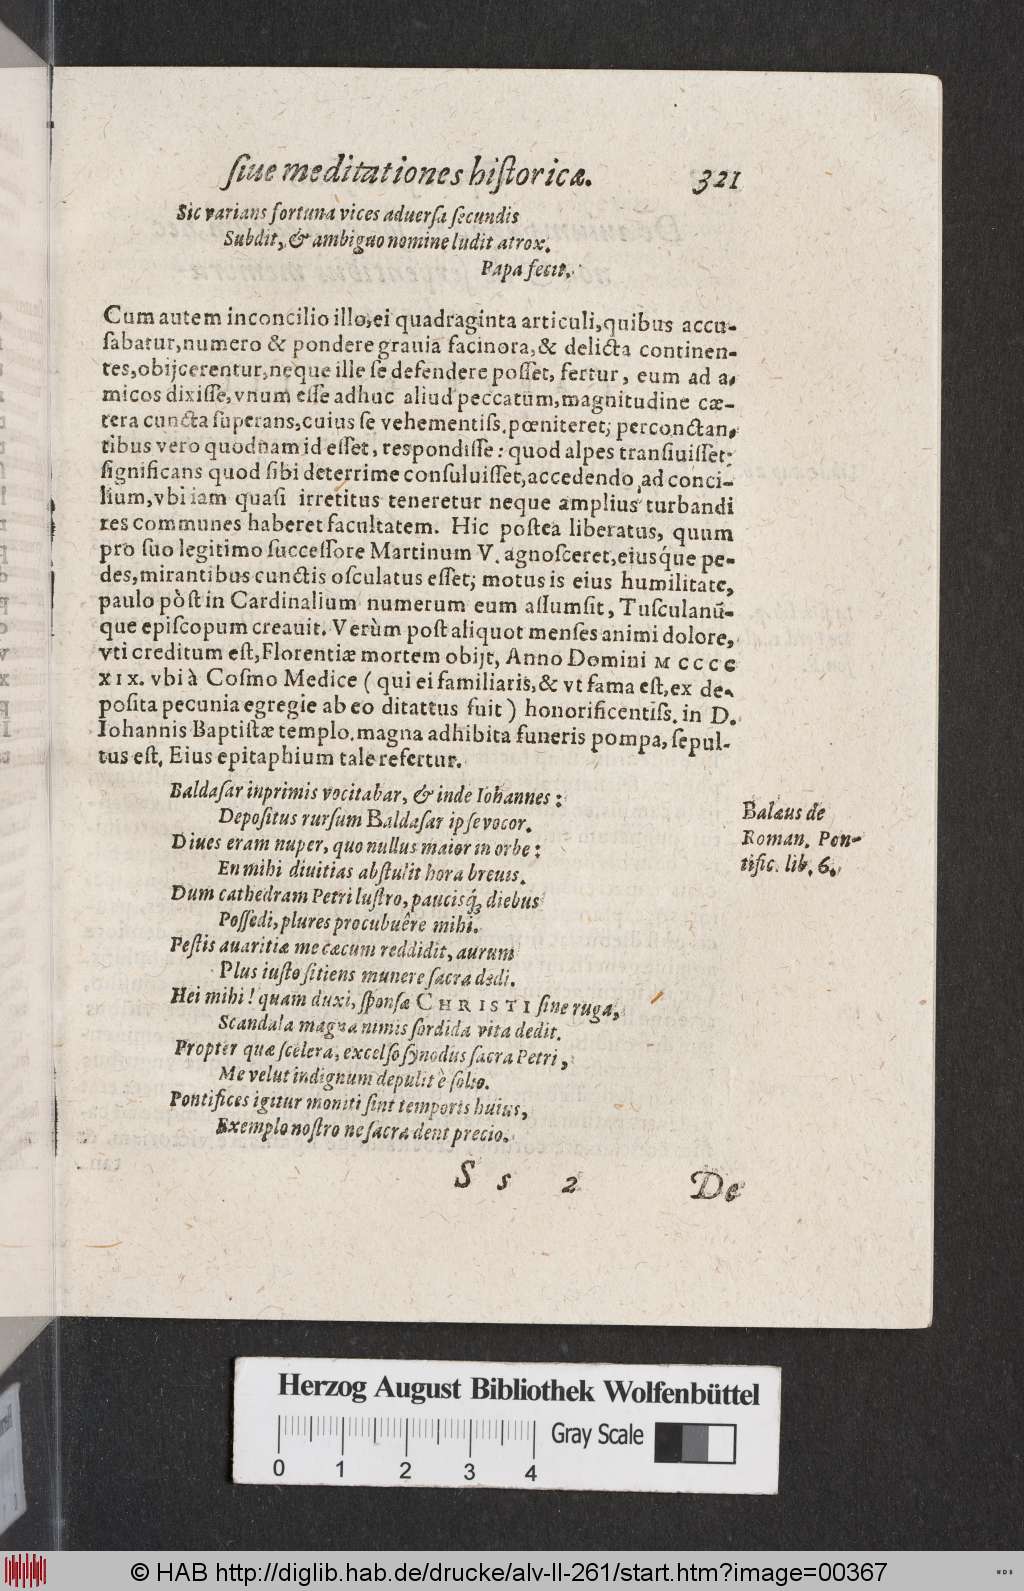 ſiue meditationes hiſtoricæ. 321
Sic varians fortuna vices aduerſa ſecundis
Subdit, & ambiguo nomine ludit atrox.
Papa fecit.
Cum autem in concilio illo, ei quadraginta articuli, quibus accu-
ſabatur, numero & pondere grauia facinora, & delicta continen-
tes, obijcerentur, neque ille ſe defendere poſſet, fertur, eum ad a-
micos dixiſſe, vnum eſſe adhuc aliud peccatum, magnitudine cæ-
tera cuncta ſuperans, cuius ſe vehementiſs. pœniteret; perconctan-
tibus vero quodnam id eſſet, respondiſſe: quod alpes tranſiuiſſet:
ſignificans quod ſibi deterrime conſuluiſſet, accedendo ad conci-
lium, vbi iam quaſi irretitus teneretur neque amplius turbandi
res communes haberet facultatem. Hic poſtea liberatus, quum
pro ſuo legitimo ſucceſſore Martinum V. agnoſceret, eiusq́ue pe-
des, mirantibus cunctis oſculatus eſſet; motus is eius humilitate,
paulo pòſt in Cardinalium numerum eum aſſumſit, Tuſculanũ-
que epiſcopum creauit. Verùm poſt aliquot menſes animi dolore,
vti creditum eſt, Florentiæ mortem obijt, Anno Domini M CCCC
XIX. vbi à Coſmo Medice ( qui ei familiaris, & vt fama eſt, ex de-
poſita pecunia egregie ab eo ditattus fuit ) honorificentiſs. in D.
Iohannis Baptiſtæ templo. magna adhibita funeris pompa, ſepul-
tus eſt. Eius epitaphium tale refertur.
Baldaſar inprimis vocitabar, & inde Iohannes:
Depoſitus rurſum Baldaſar ipſe vocor.
Diues eram nuper, quo nullus maior in orbe:
En mihi diuitias abſtulit hora breuis.
Dum cathedram Petri luſtro, paucisq́; diebus
Poſſedi, plures procubuêre mihi.
Peſtis auaritiæ me cæcum reddidit, aurum
Plus iuſto ſitiens munere ſacra dedi.
Hei mihi! quam duxi, ſponſæ CHRISTI ſine ruga,
Scandala magna nimis ſordida vita dedit.
Propter quæ ſcelera, excelſo ſynodus ſacra Petri,
Me velut indignum depulit è ſolio.
Pontifices igitur moniti ſint temporis huius,
Exemplo noſtro ne ſacra dent precio.
Balæus de
Roman. Pon-
tific. lib. 6.
S s 2 De
Herzog August Bibliothek Wolfenbüttel
Gray Scale
0 1 2 3 4
© HAB http://diglib.hab.de/drucke/alv-ll-261/start.htm?image=00367